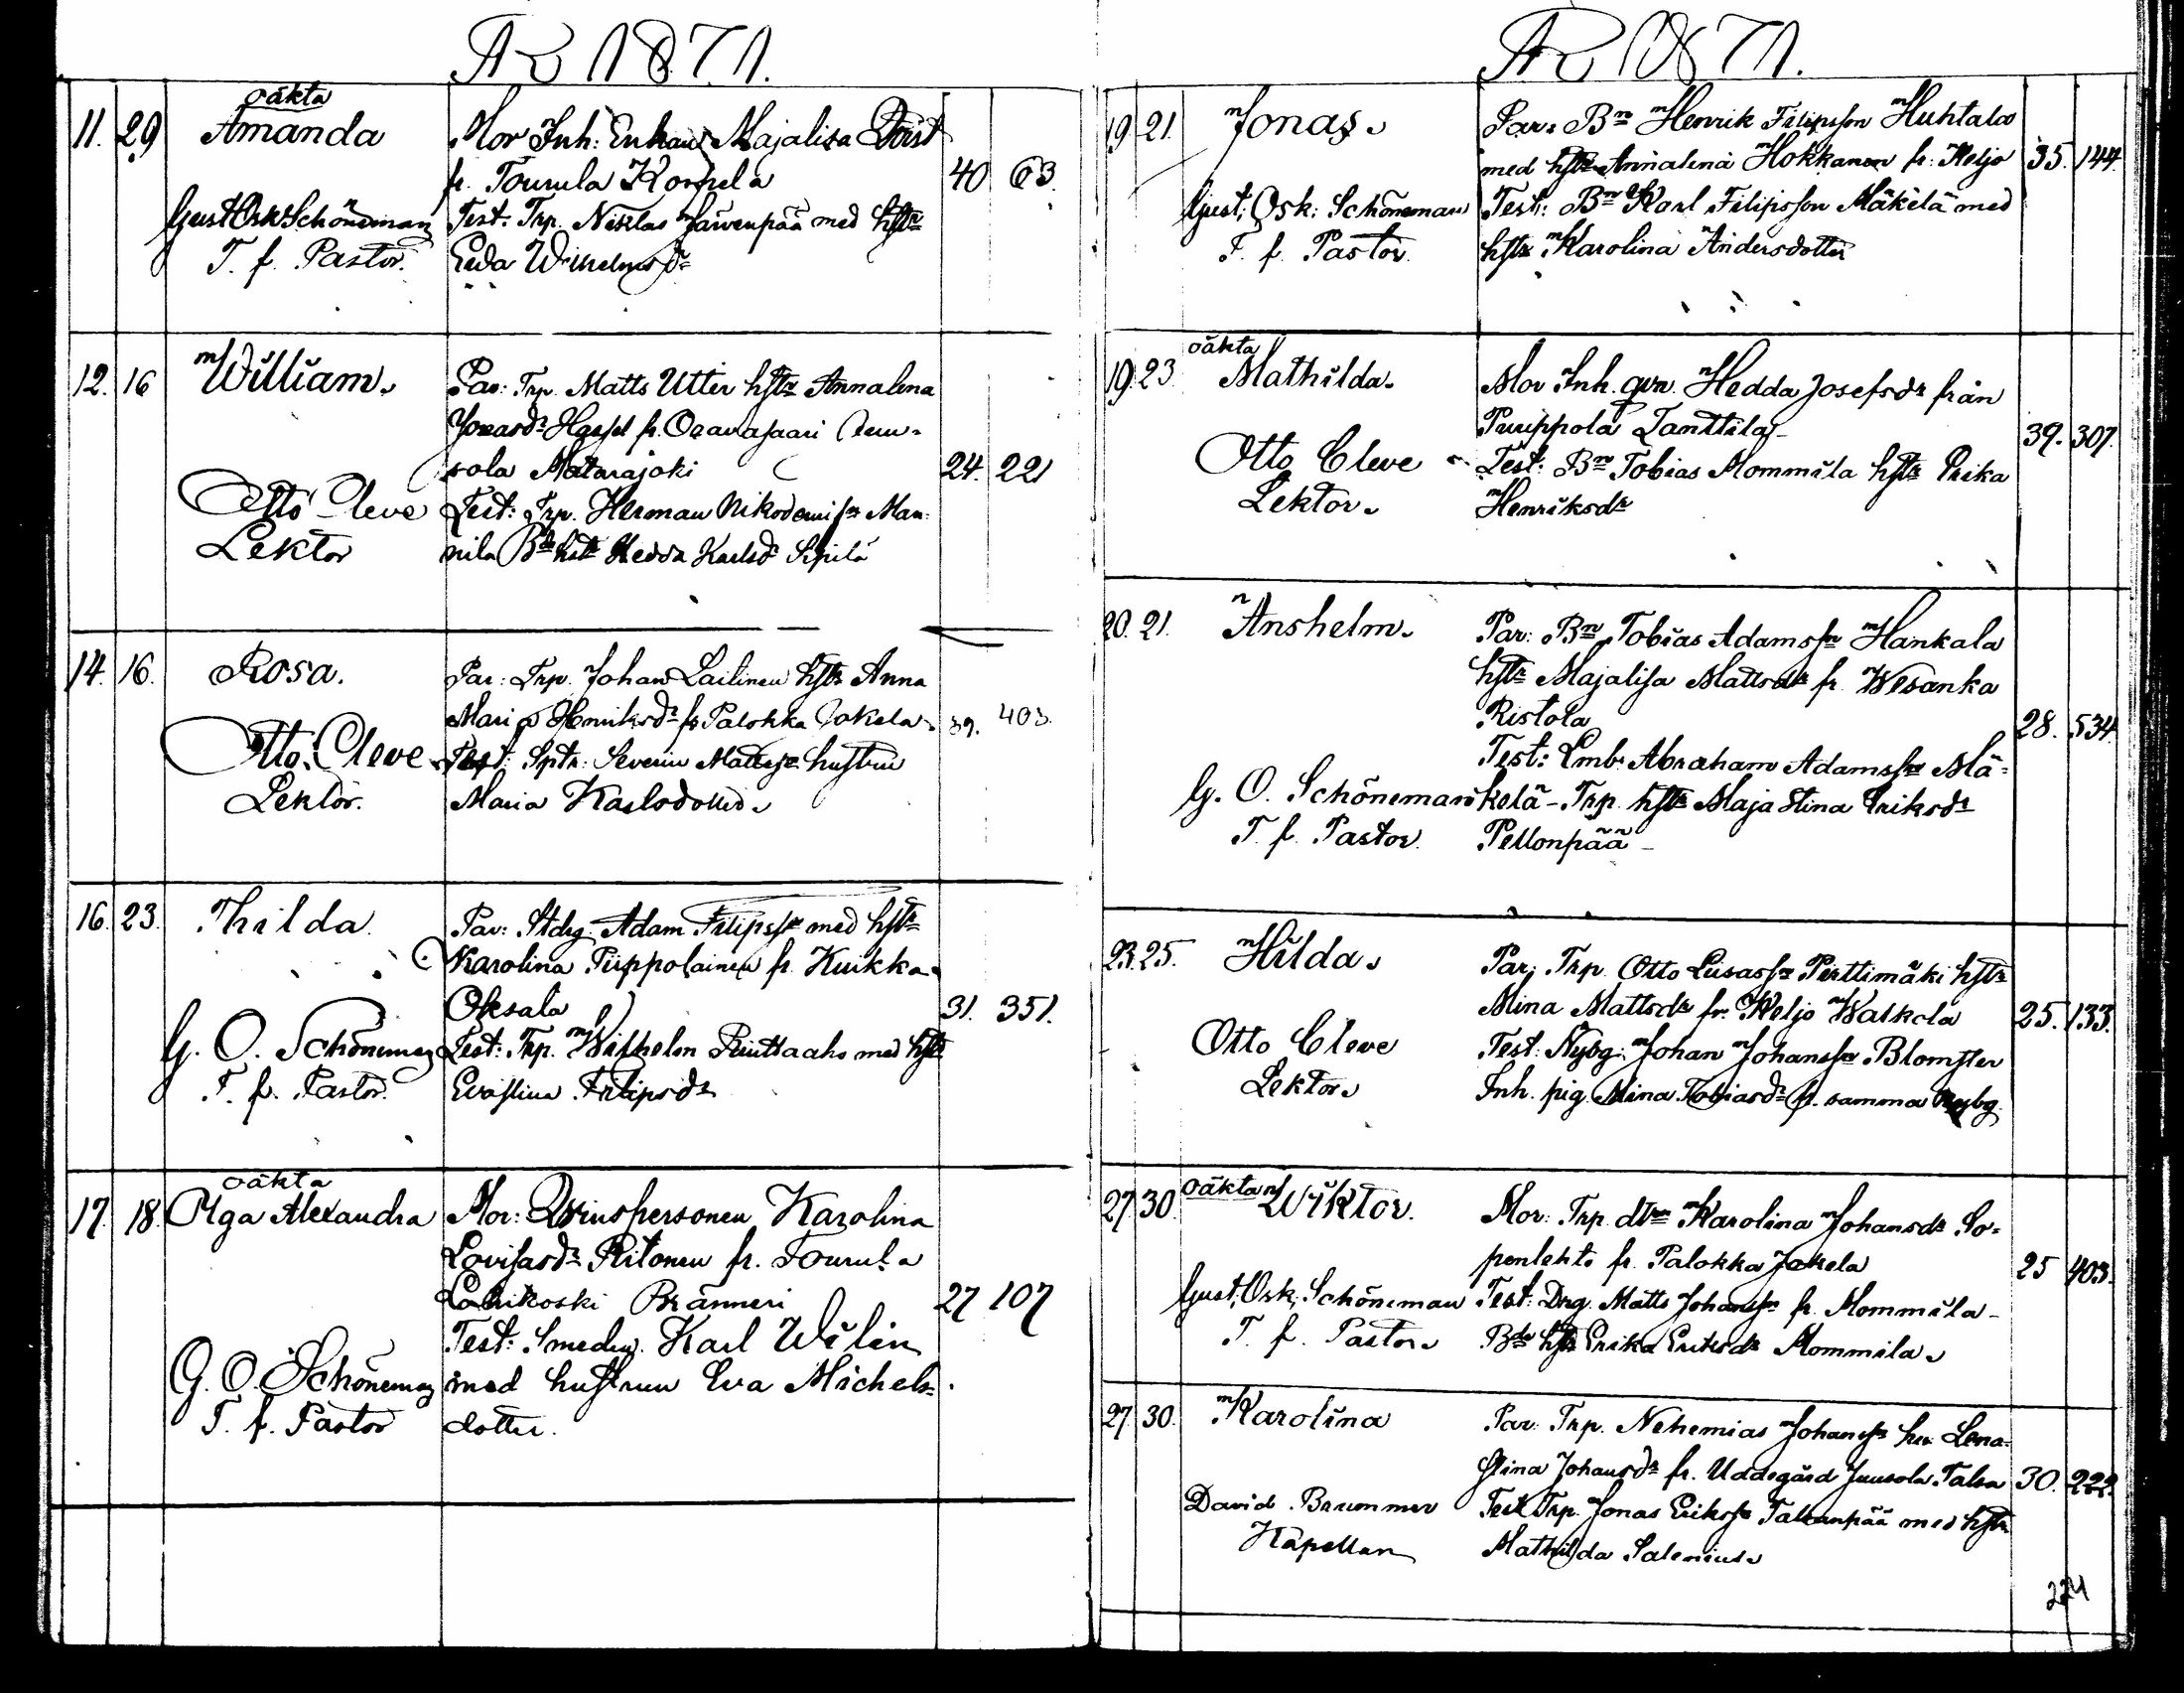 År 1871.
11. 29 oäkta
Amanda
Mor Inh: Enkan Majalisa Dörst
fr. Tourula Korpela
40 63.
Gust Osk Schöneman
Test: Trp. Niklas Järvenpää med hstr
T. f. Pastor.
Eeda Wilhelmsdr
12. 16 William.
Par: Trp. Matts Utter hstr Annalena
Jonasdr Hassel fr. Oravasaari
sola Matarajoki
24. 221
Otto Cleve
Lektor
Test: Trp. Herman Nikodemisn Man-
nila Bde hstr Hedda Karlsdr Sipilä
14. 16. Rosa.
Par: Trp. Johan Lailinen hstr Anna
Maria Henriksdr fr Palokka Jokela.
39. 403
Otto Cleve
Lektor.
Test: Sptr: Severin Mattssn hustru
Maria Karlsdotter.
16. 23. Thilda
Par: Stdrg. Adam Filipssn med hstr
Karolina Piippolainen fr. Kuikka
Oksala
31. 351.
G. O. Schöneman
T. f. Pastor.
Test: Trp. Wilhelm Ruuttaaho med hstr
Evastina Filipsdr
17. 18. oäkta
Olga Alexandra
Mor: Qvinspersonen Karolina
Lovisasdr Ritonen fr. Tourula
Lohikoski Bränneri
27 107
G. O. Schöneman
T. f. Pastor
Test: Smeden Karl Wilen
med hustrun Eva Michels-
dotter.
År 1871.
19. 21. Jonas.
Par: Bn Henrik Filipsson Huhtala
med hstr Annalena Hokkanen fr: Keljo
35. 144.
Gust: Osk: Schöneman
T. f. Pastor.
Test: Bn Karl Filipsson Mäkelä med
hstr Karolina Andersdotter
19. 23. oäkta
Mathilda.
Mor Inh. qvn. Hedda Josefsdr från
Puuppola Lanttila
39. 307.
Otto Cleve
Lektor.
Test: Bn Tobias Mommila hstr Erika
Henriksdr
20. 21. Anshelm.
Par: Bn Tobias Adamssn Hankala
hstr Majalisa Mattsdr fr. Wesanka
Ristola
28. 534.
G. O. Schöneman
T. f. Pastor.
Test: Lmb: Abraham Adamssn Mä-
kelä - Trp. hstr Maja Stina Eriksdr
Pellonpää -
23. 25. Hilda.
Par: Trp. Otto Lusassn Perttimäki hstr
Mina Mattsdr fr. Keljo Walkola
25. 133.
Otto Cleve
Lektor.
Test: Nybg: Johan Johanssn Blomster
Inh. pig. Mina Tobiasdr fr. samma Nybg.
27. 30. oäkta Wiktor.
Mor: Trp. dtrn Karolina Johansdr So-
penlehto fr. Palokka Jokela
25 403.
Gust: Osk: Schöneman
T. f. Pastor.
Test: Drg. Matts Johanssn fr. Mommila -
Bde hstr Erika Eriksdr Mommila.
27. 30. Karolina
Par: Trp. Nehemias Johanssn hu: Lena-
stina Johansdr fr. Uddegård Juusola Talsa
30. 222.
David Brummer
Kapellan
Test Trp. Jonas Erikssn Taka­npää med hstr
Mathilda Salenius.
224